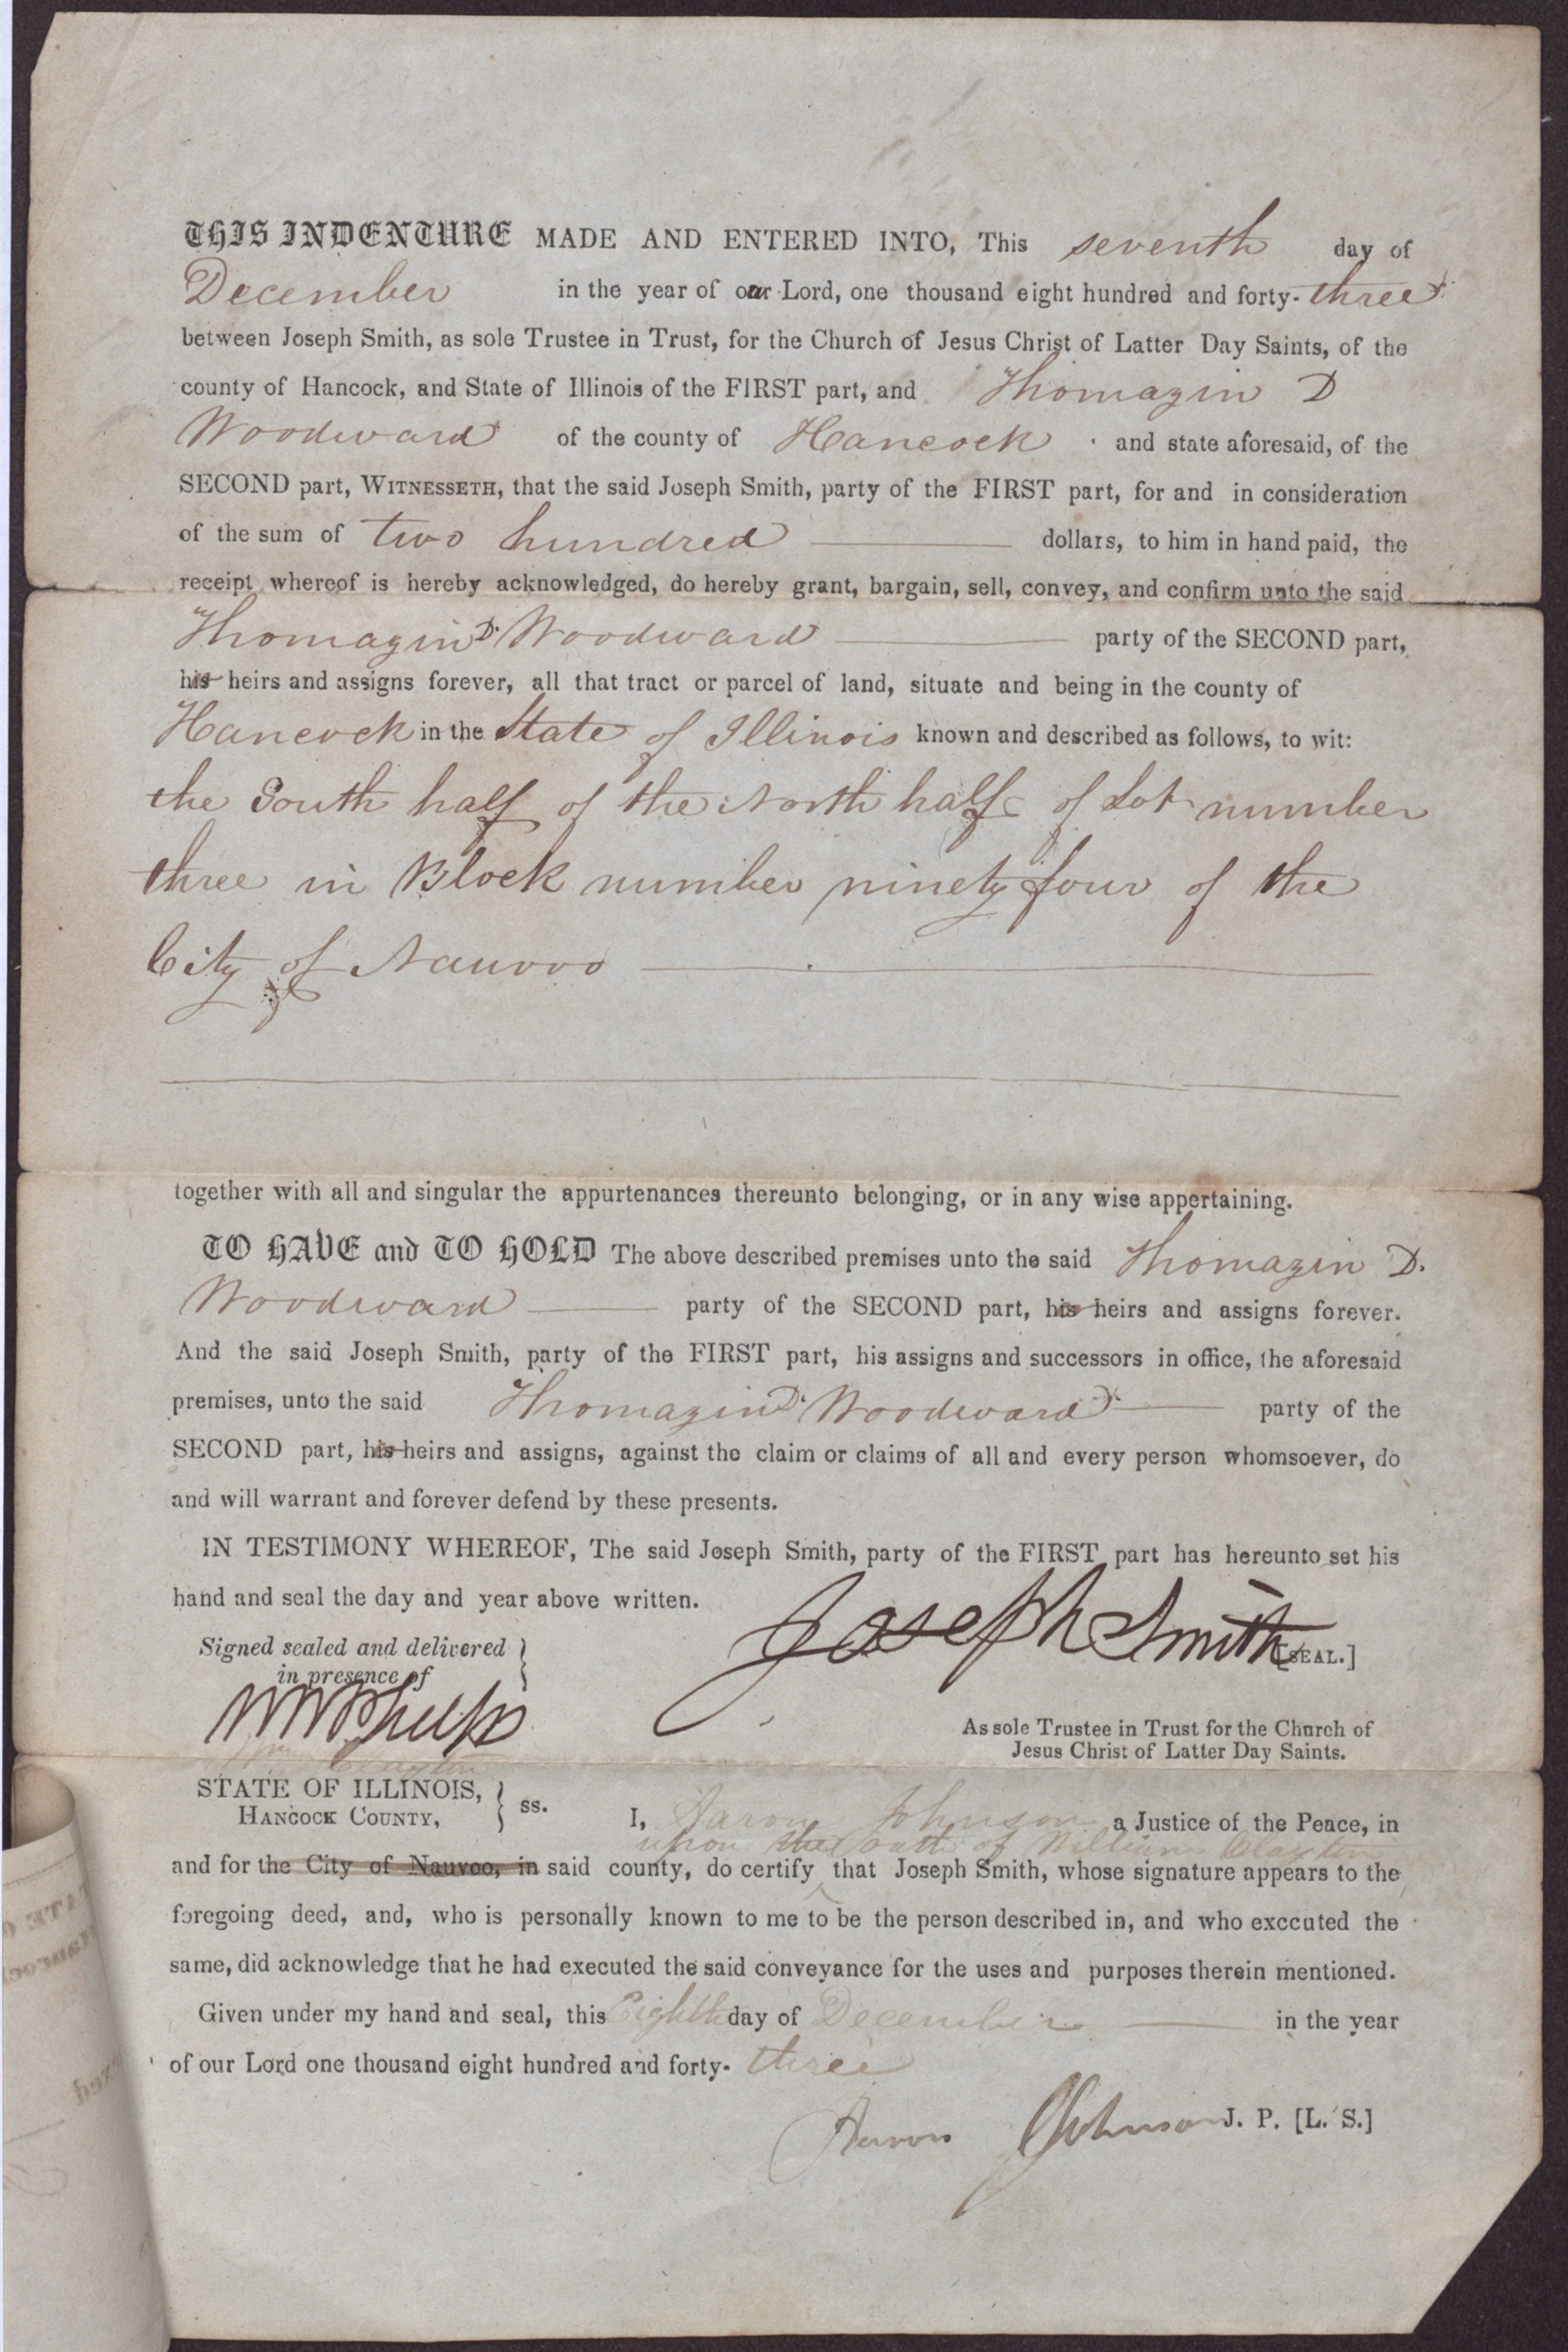 THIS INDENTURE MADE AND ENTERED INTO, This seventh day of
December in the year of our Lord, one thousand eight hundred and forty-three
between Joseph Smith, as sole Trustee in Trust, for the Church of Jesus Christ of Latter Day Saints, of the
county of Hancock, and State of Illinois of the FIRST part, and Thomazin D
Woodward of the county of Hancock and state aforesaid, of the
SECOND part, WITNESSETH, that the said Joseph Smith, party of the FIRST part, for and in consideration
of the sum of two hundred dollars, to him in hand paid, the
receipt whereof is hereby acknowledged, do hereby grant, bargain, sell, convey, and confirm unto the said
Thomazin D. Woodward party of the SECOND part,
his heirs and assigns forever, all that tract or parcel of land, situate and being in the county of
Hancock in the State of Illinois known and described as follows, to wit:
the South half of the North half of Lot number
three in Block number ninety four of the
City of Nauvoo
together with all and singular the appurtenances thereunto belonging, or in any wise appertaining.
TO HAVE and TO HOLD The above described premises unto the said Thomazin D.
Woodward party of the SECOND part, his heirs and assigns forever.
And the said Joseph Smith, party of the FIRST part, his assigns and successors in office, the aforesaid
premises, unto the said Thomazin D. Woodward party of the
SECOND part, his heirs and assigns, against the claim or claims of all and every person whomsoever, do
and will warrant and forever defend by these presents.
IN TESTIMONY WHEREOF, The said Joseph Smith, party of the FIRST part has hereunto set his
hand and seal the day and year above written.
Joseph Smith [SEAL.]
Signed sealed and delivered }
in presence of
W W Phelps
Wm Clayton
As sole Trustee in Trust for the Church of
Jesus Christ of Latter Day Saints.
STATE OF ILLINOIS, } ss.
HANCOCK COUNTY,
I, Aaron Johnson a Justice of the Peace, in
upon the oath of William Clayton
and for the City of Nauvoo, in said county, do certify that Joseph Smith, whose signature appears to the
foregoing deed, and, who is personally known to me to be the person described in, and who exccuted the
same, did acknowledge that he had executed the said conveyance for the uses and purposes therein mentioned.
Given under my hand and seal, this Eighth day of December in the year
of our Lord one thousand eight hundred and forty-three
Aaron Johnson J. P. [L. S.]